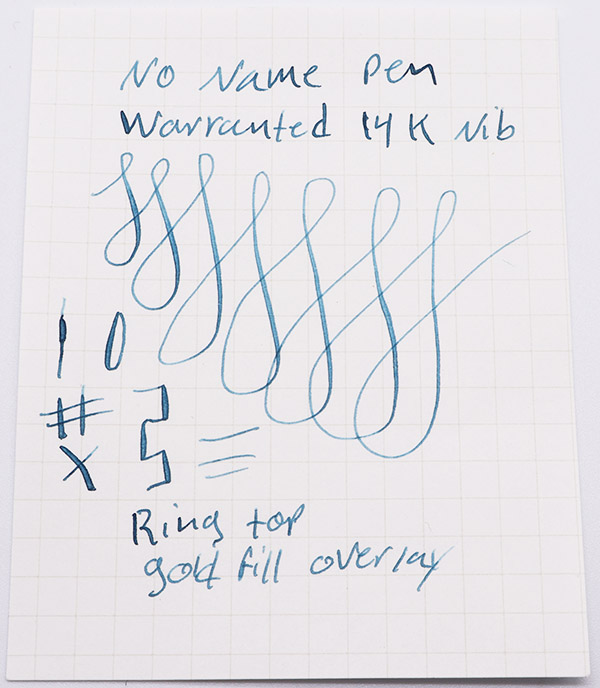 No Name Pen
Warranted 14K Nib
1 0
#
X
Ring top
gold fill overlay